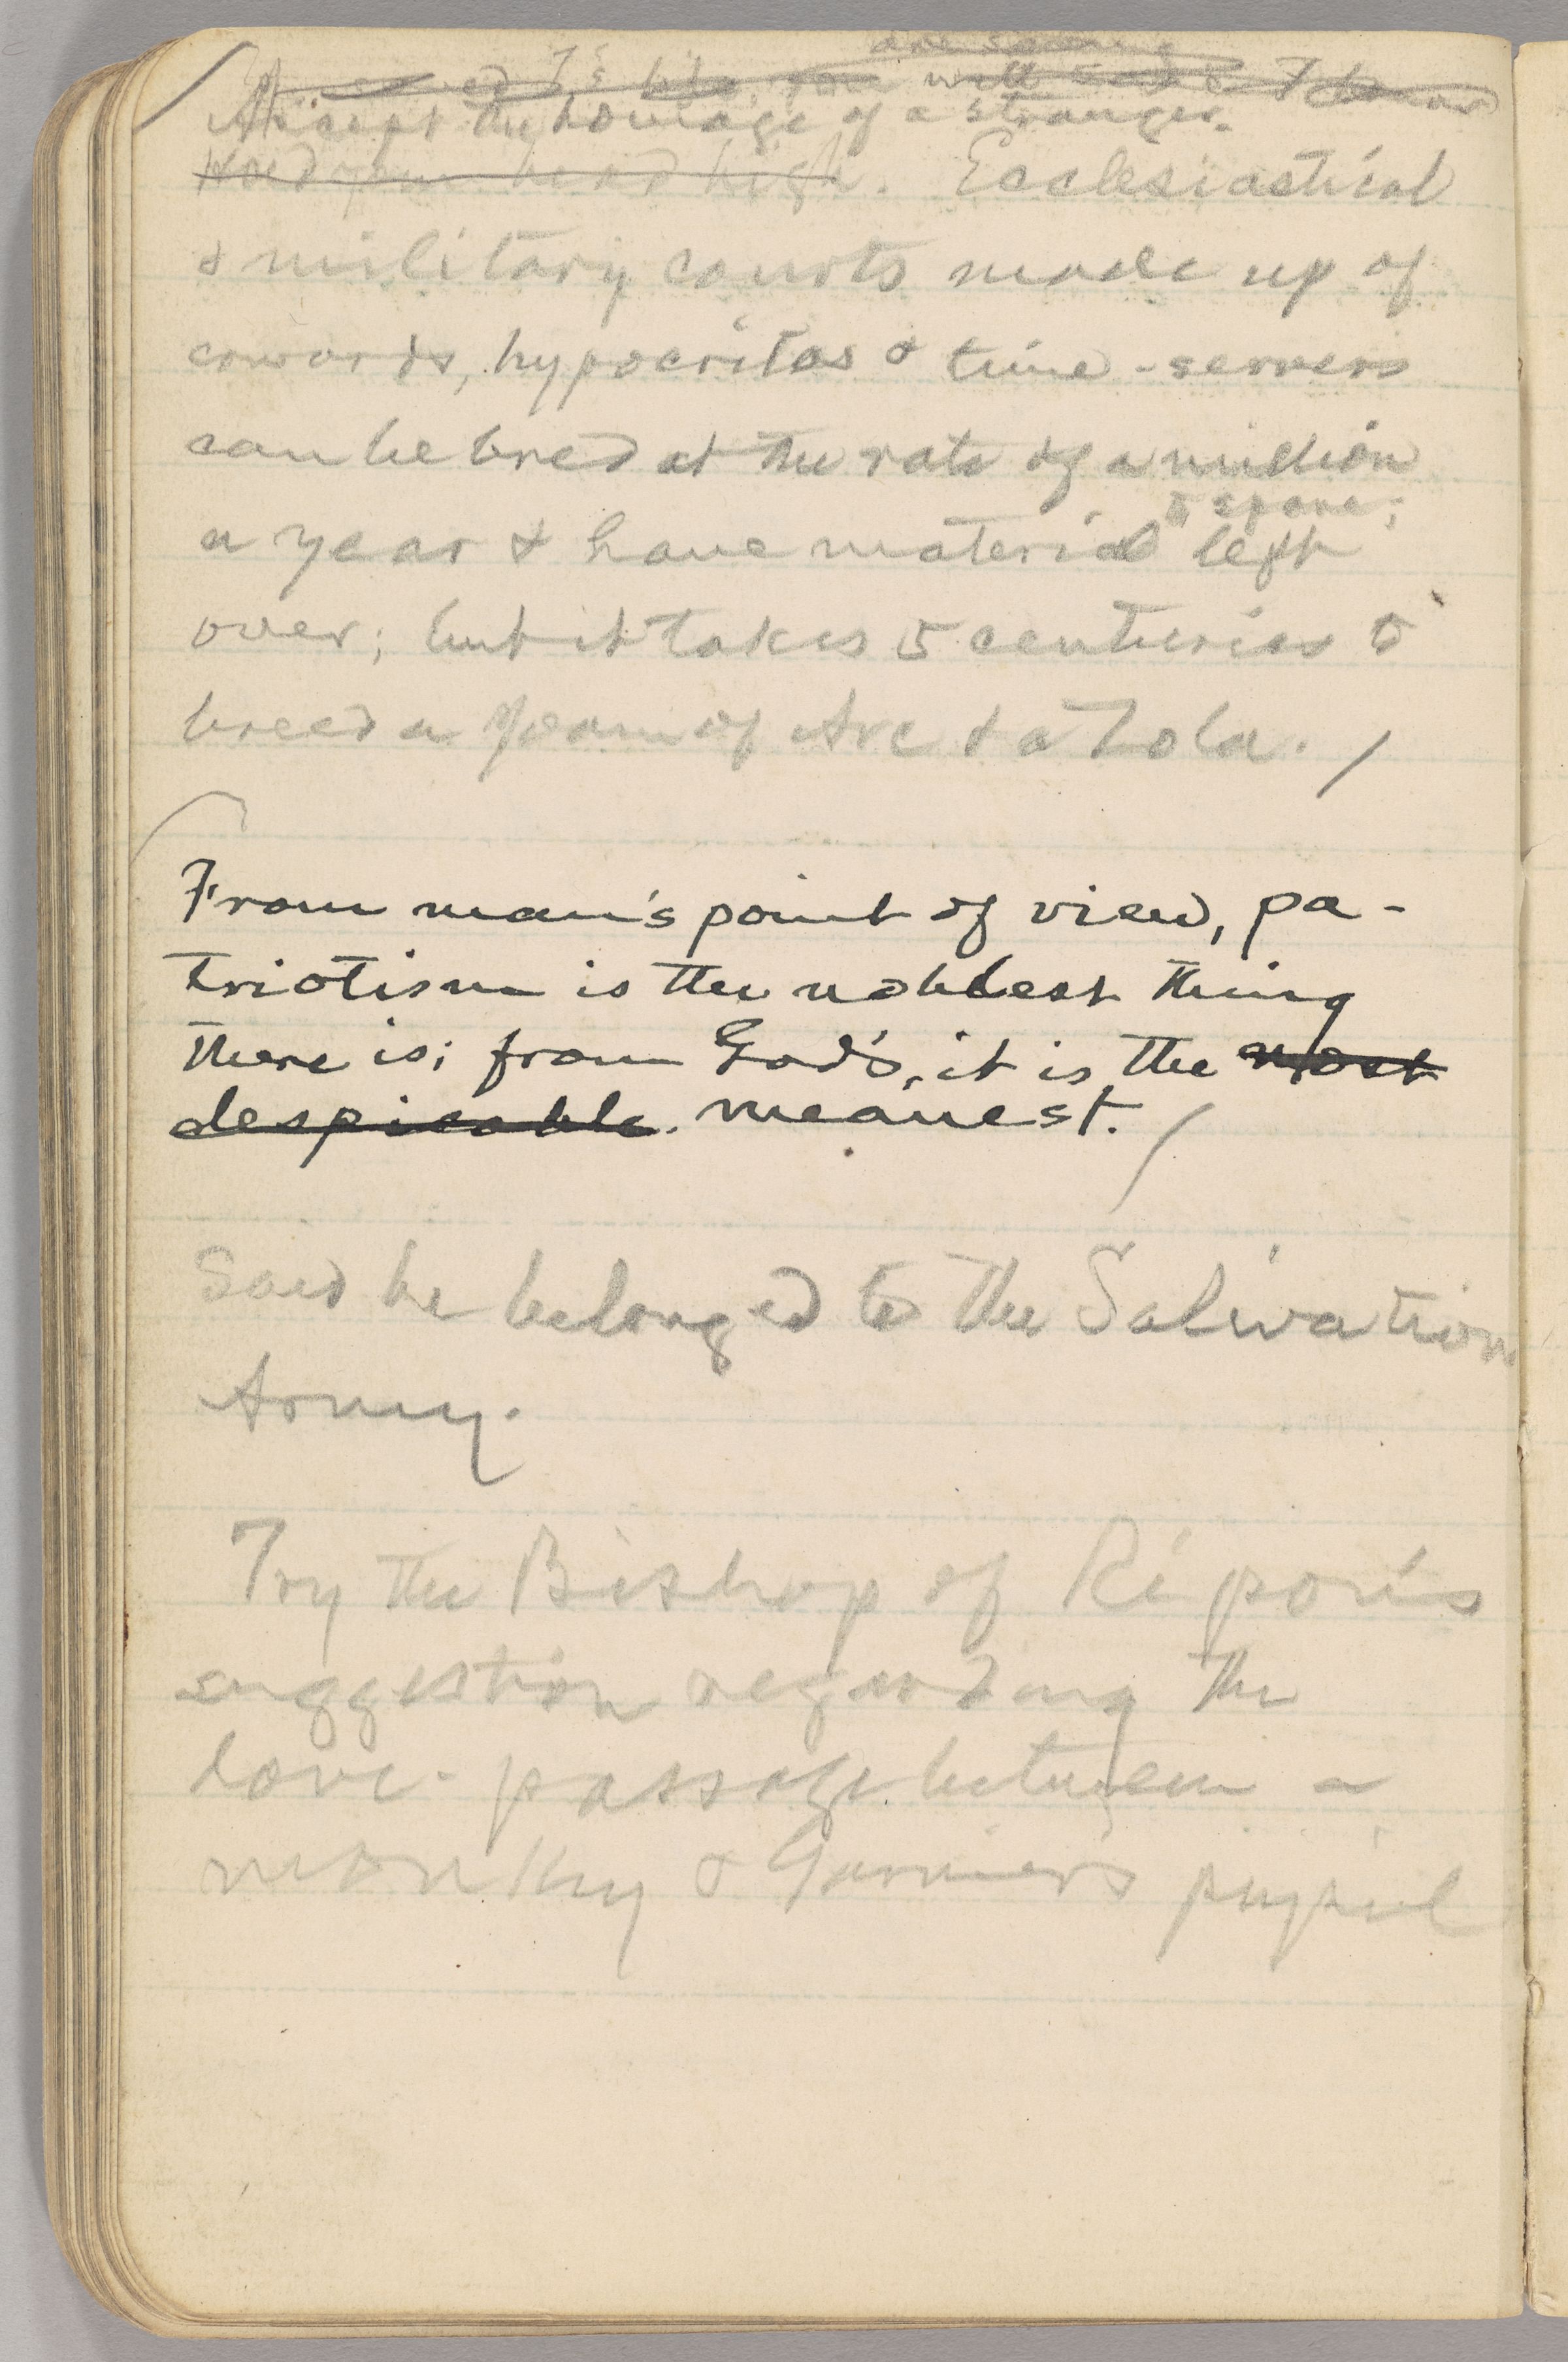 Accept the homage of a stranger.
Hold your head high. Ecclesiastical
& military courts made up of
cowards, hypocrites & time-servers
can be bred at the rate of a million
to spare;
a year & have material left
over; but it takes 5 centuries to
breed a Joan of Arc & a Zola.
From man's point of view, pa-
triotism is the noblest thing
there is; from God's, it is the most
despicable. meanest.
Said he belonged to the Salivation
Army.
Try the Bishop of Ripon's
suggestion regarding the
love-passage between a
monkey & Garnier's pupil